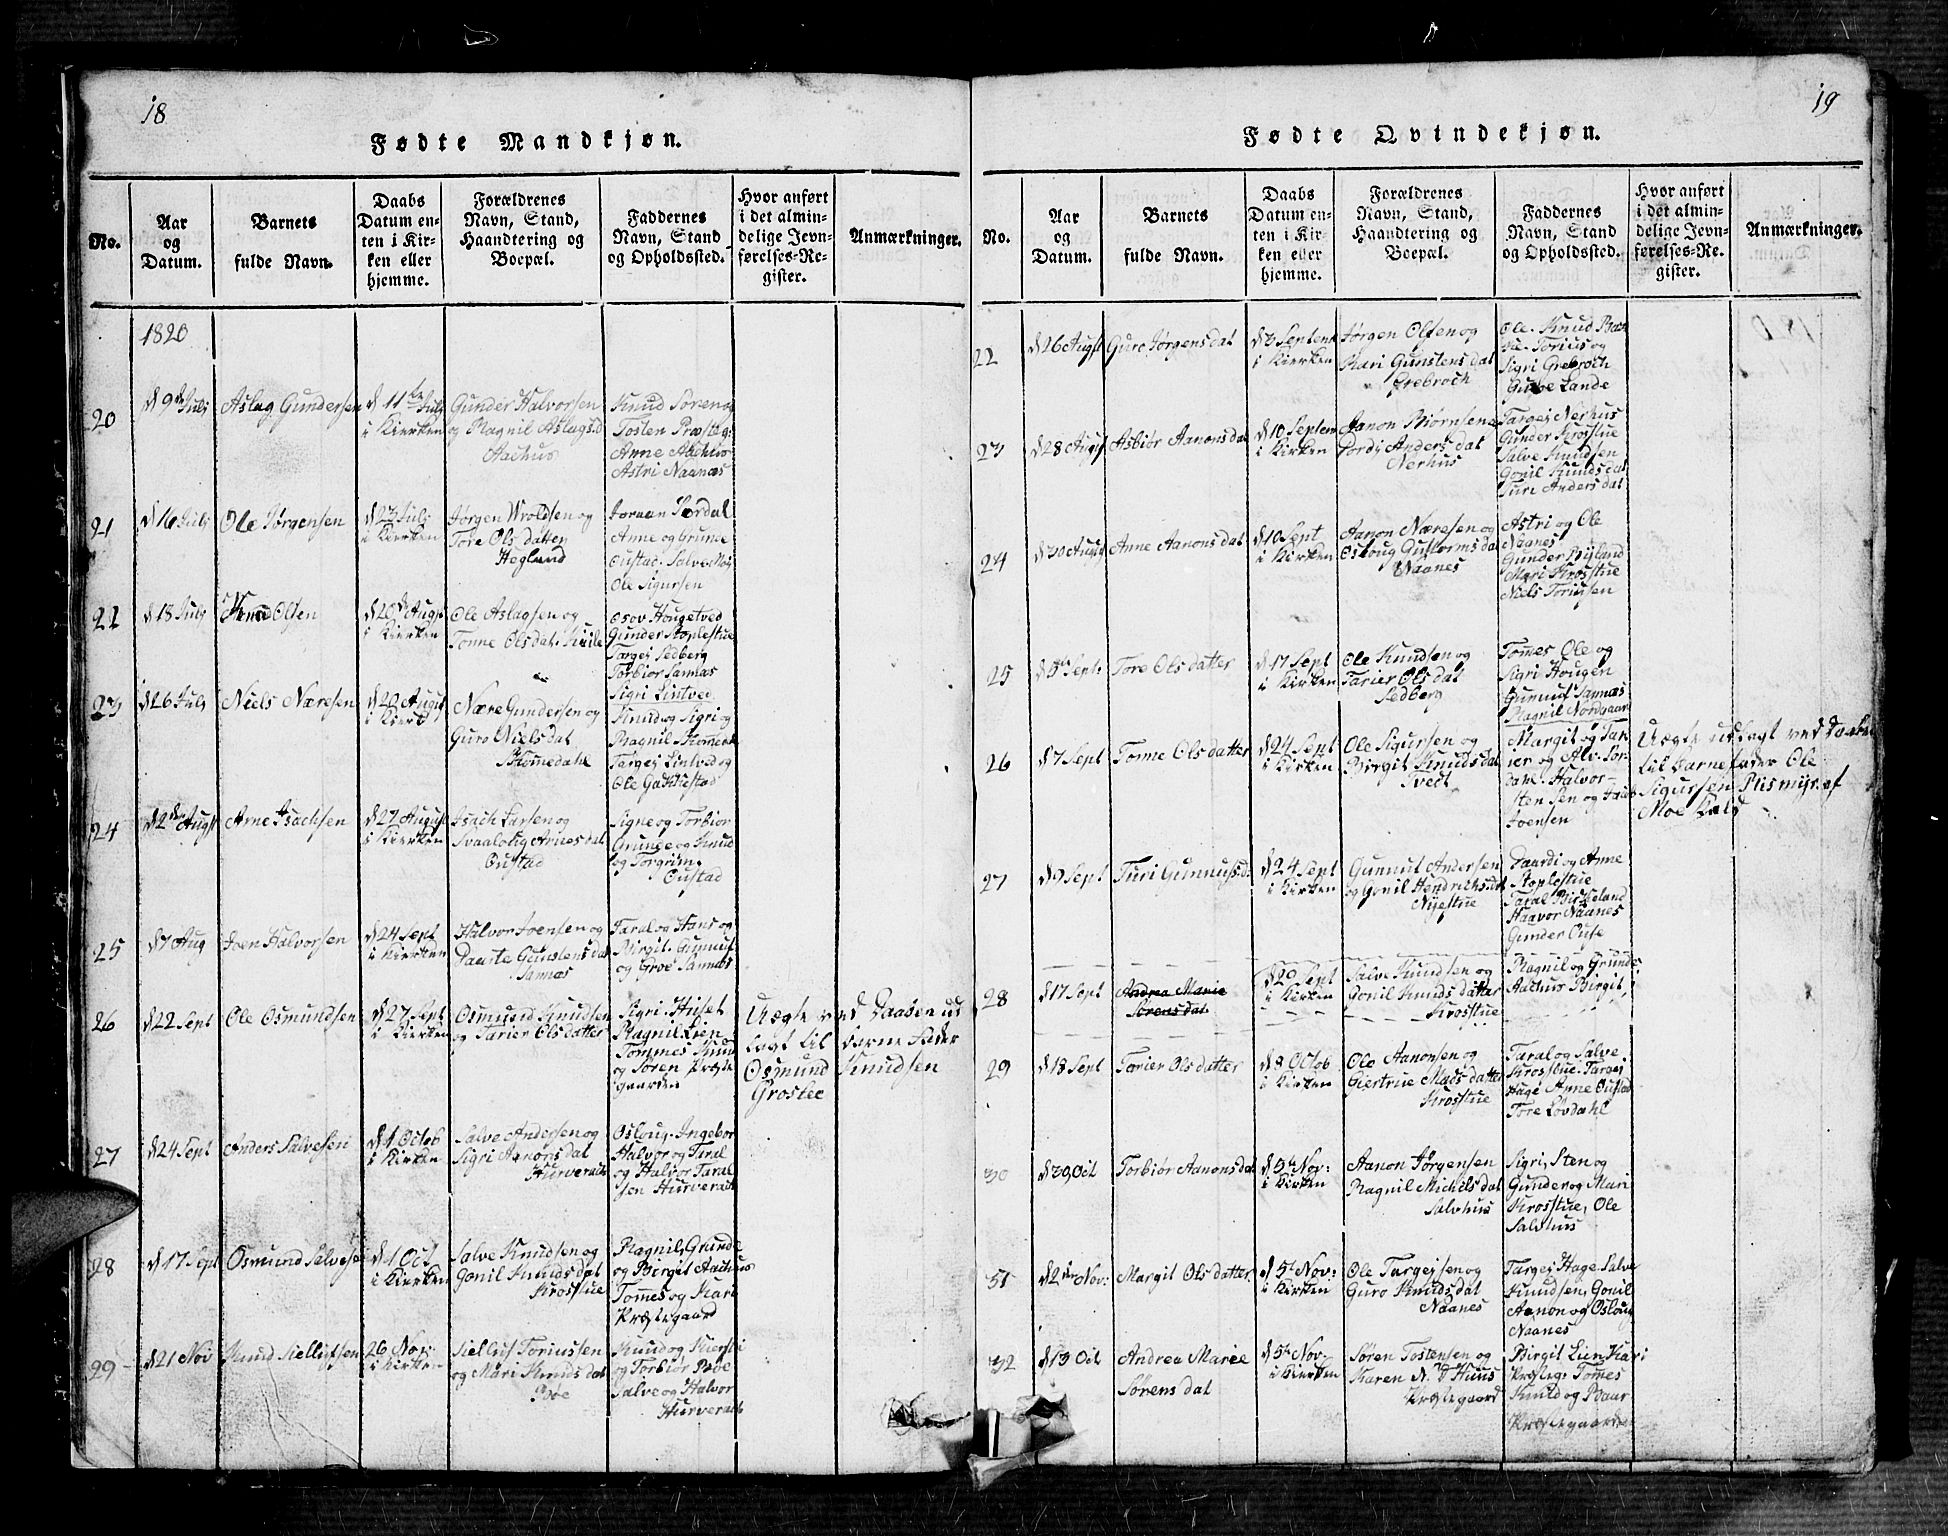 18
Fødte Mandkjøn.
No.
Aar
og
Datum.
Barnets
fulde Navn.
Daabs
Datum en-
ten i Kir-
ken eller
hjemme.
Forældrenes
Navn, Stand,
Haandtering og
Boepæl.
Faddernes
Navn, Stand
og Opholdssted.
Hvor anført
i det almin-
delige Jevn-
førelses-Re-
gister.
Anmærkninger.
1820
20
d 9de Julj
Aslag Gundersen
d 11te Julj
i Kierken
Gunder Halvorsen
og Ragnil Aslagsd
Aachus
Knud Soren og
Tosten Præsteg:
Anne Aachus
Astri Naanæs
21
d 16 Julj
Ole Jørgensen
d 23 Julj
i Kierken
Jørgen Wroldsen og
Tore Olsdatter
Heglund
Joraan Sordal
Anne og Grunde
Oustad. Salve Moj
Ole Sigursen
22
d 18 Julj
Knud Olsen
d 20de Augs
i Kierken
Ole Aslagsen og
Tonne Olsdat. Kuile
Osov Hougetved
Gunder Stoplestue
Targej Sedberg
Torbior Sannæs
Sigri Lintved
23
d 26 Julj
Niels Næresen
d 20 Augus
i Kierk
Nære Gundersen og
Guro Nielsdat
Skomedahl
Knud og Sigri og
Ragnil Skomedal
Targej Lintved og
Ole Gakkestad
24
d 2den Augst
Arne Isachsen
d 27 August
i Kierken
Isach Larsen og
Svaalolig Arnesdat
Oustad
Signe og Torbior
Grunde og Knud
og Torgrim
Oustad
25
d 7 Aug
Joen Halvorsen
d 24 Sept
i Kierken
Halvor Joensen og
Daarte Gunstensdat
Sannæs
Taral og Hans og
Birgit. Gunnuf
og Groe Sannæs
26
d 22 Sept
Ole Osmundsen
d 27 Sept
i Kierken
Osmund Knudsen
og Tarier Olsdatter
Sigri. Huset
Ragnil Lien
Tommes Knud
og Søren Præste
gaarden
Uægte ved Daaben ud
lagt til Barne Fader
Osmund Knudsen
Grostee
27
d 24 Sept
Anders Salvesen
d 1 Octob
i Kierken
Salve Andersen og
Sigri Aanonsdat
Hurverack
Osloug. Ingebor
Halvor og Taral
og Halvor Taral
sen Hurverack
28
d 17 Sept
Osmund Salvesen
d 1 Oct
i Kierken
Salve Knudsen og
Gonil Knudsdat
Krosstue
Ragnil, Grunde
og Birgit Aachus
Tomes og Kari
Præstegaard
29
d 21 Nov
Knud Siellufsen
26 Nov:
i Kirke
Sielluf Toriussen
og Mari Knudsdat
Boe
Knud og Kiersti
og Torbiør Boe
Salve og Halvor
Hurverack
19
Fødte Qvindekjøn.
No.
Aar
og
Datum.
Barnets
fulde Navn.
Daabs
Datum en-
ten i Kir-
ken eller
hjemme.
Forældrenes
Navn, Stand,
Haandtering og
Boepæl.
Faddernes
Navn, Stand
og Opholdssted.
Hvor anført
i det almin-
delige Jevn-
førelses-Re-
gister.
Anmærkninger.
22
d 26 Augst
Guro Jørgensdat
d 3 Septem
i Kierken
Jørgen Olsen og
Mari Gunstensdat
Grebroch
Ole. Knud
Torius og
Sigri Grebroch
Lande
23
d 28 Augst
Asbiør Aanonsdat
d 10 Septem
i Kierken
Aanon Biørnsen
Pordy Andersdat
Nerhus
Targej Nerhus
Gunder Krosstue
Salve Knudsen
Gonil Knudsdat
Turi Andersdat
24
d 30 Augst
Anne Aanonsdat
d 10 Sept
i Kirken
Aanon Næresen og
Osloug Guttormsdat
Naanes
Astri og Ole
Naanes
Gunder Ryland
Mari Krosstue
Niels Toriussen
25
Sept:
Tore Olsdatter
d 17 Sept
i Kirken
Ole Knudsen og
Tarier Olsdat
Sedberg
Tomes Ole og
Sigri Hougen
Gunnuf Sannæs
Ragnil Nordgaard
26
d 7 Sept
Tonne Olsdatter
d 24 Sept
i Kirken
Ole Sigursen og
Birgit Knudsdat
Tvedt
Margit og Tar
ier og Alv. Sor
dahl. Halvor-
sten Sen og
Joensen
Uægte udlagt ved Daaben
til Barnefader Ole
Sigursen Plismyr af
Moe Kald
27
d 9 Sept
Turi Gunnufsd.
d 24 Sept
i Kirken
Gunnuf Andersen
og Gonil Hendrichsdat
Nyestue
Daardi og Anne
Stoplestue
Taral Birkeland
Haavor Naanes
Gunder Ouse
28
d 17 Sept
Andrea Marie
Sørensdat
d 20 Sept
i Kirken
Salve Knudsen og
Gonil Knudsdatter
Krosstue
Ragnil og Grunde
Aachus Birgit
29
d 18 Sept
Torier Olsdatter
d 8 Octob
i Kirken
Ole Aanonsen og
Giertrue Madsdatter
Krosstue
Taral og Salve
Krosstue. Targej
Hage Anne Oustad
Tore Løvdahl
30
d 30, Oct
Torbiør Aanonsdat
d 5te Nov:
i Kirken
Aanon Jørgensen
Ragnil Michelsdat
Salvhus
Sigri, Sten og
Gunder og Mari
Krosstue, Ole
Salvhus
31
d 2den Nov:
Margit Olsdatter
d 5te Nov:
i Kirken
Ole Targejsen og
Guro Knudsdat
Naanes
Targej Hage. Salve
Knudsen, Gonil
Aanon og Osloug
Naanes
32
d 13 Oct
Andrea Marie
Sørensdat
d 5te Nov-
i Kierken
Søren Tostensen og
Karen N. D Huus
Præstegaard
Birgit Lien Kari
Præsteg: Tomes
Knud og Baar
Præstegaarden